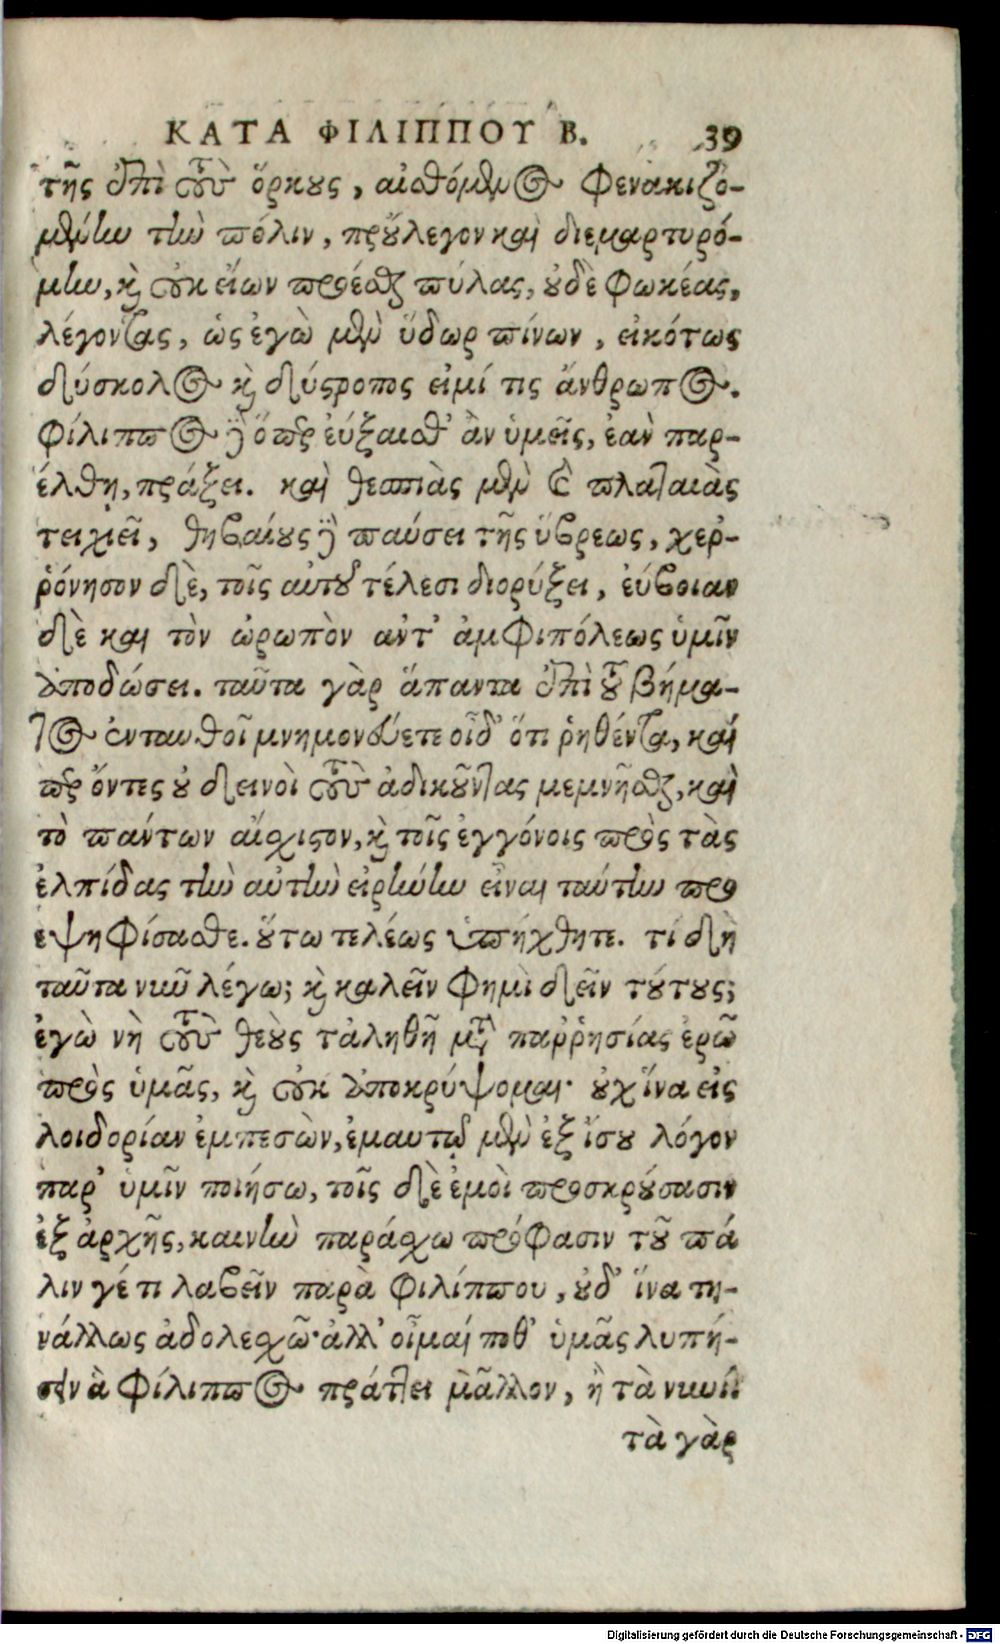 ΚΑΤΑ ΦΙΛΙΠΠΟΥ Β. 39
τῆς ἐπὶ τοὺς ὅρκους, αἰσθόμενος φενακιζο-
μένην τὴν πόλιν, προύλεγον καὶ διεμαρτυρό-
μην, καὶ οὐκ εἴων προέσθαι πύλας, οὐδὲ φωκέας,
λέγοντας, ὡς ἐγὼ μὲν ὕδωρ πίνων, εἰκότως
δύσκολος καὶ δύστροπος εἰμί τις ἄνθρωπος.
Φίλιππος δὲ ὅπερ εὔξαισθ' ἂν ὑμεῖς, ἐὰν παρ-
έλθῃ, πράξει. καὶ θεσπιὰς μὲν καὶ πλαταιὰς
τειχιεῖ, θηβαίους δὲ παύσει τῆς ὕβρεως, χερ-
ρόνησον δὲ, τοῖς αὑτοῦ τέλεσι διορύξει, εὔβοιαν
δὲ καὶ τὸν ὠρωπὸν ἀντ' ἀμφιπόλεως ὑμῖν
ἀποδώσει. ταῦτα γὰρ ἅπαντα ἐπὶ τοῦ βήμα-
τος ἐνταυθοῖ μνημονεύετε οἶδ' ὅτι ῥηθέντα, καί
περ ὄντες οὐ δεινοὶ τοὺς ἀδικοῦντας μεμνῆσθαι, καὶ
τὸ πάντων αἴχιστον, καὶ τοῖς ἐγγόνοις πρὸς τὰς
ἐλπίδας τὴν αὐτὴν εἰρήνην εἶναι ταύτην προ
εψηφίσασθε. οὕτω τελέως ὑπήχθητε. τί δὴ
ταῦτα νῦν λέγω; καὶ καλεῖν φημὶ δεῖν τούτους;
ἐγὼ νὴ τοὺς θεοὺς τἀληθῆ μετὰ παῤῥησίας ἐρῶ
πρὸς ὑμᾶς, καὶ οὐκ ἀποκρύψομαι· οὐχ ἵνα εἰς
λοιδορίαν ἐμπεσὼν, ἐμαυτῷ μὲν ἐξ ἴσου λόγον
παρ' ὑμῖν ποιήσω, τοῖς δὲ ἐμοὶ προσκρούσασιν
ἐξ ἀρχῆς, καινὴν παράσχω πρόφασιν τοῦ πά
λιν γέ τι λαβεῖν παρὰ Φιλίππου, οὐδ' ἵνα τη-
νάλλως ἀδολεσχῶ· ἀλλ' οἶμαί ποθ' ὑμᾶς λυπή-
σειν ἃ Φίλιππος πράττει μᾶλλον, ἢ τὰ νυνί
τὰ γὰρ
Digitalisierung gefördert durch die Deutsche Forschungsgemeinschaft - DFG